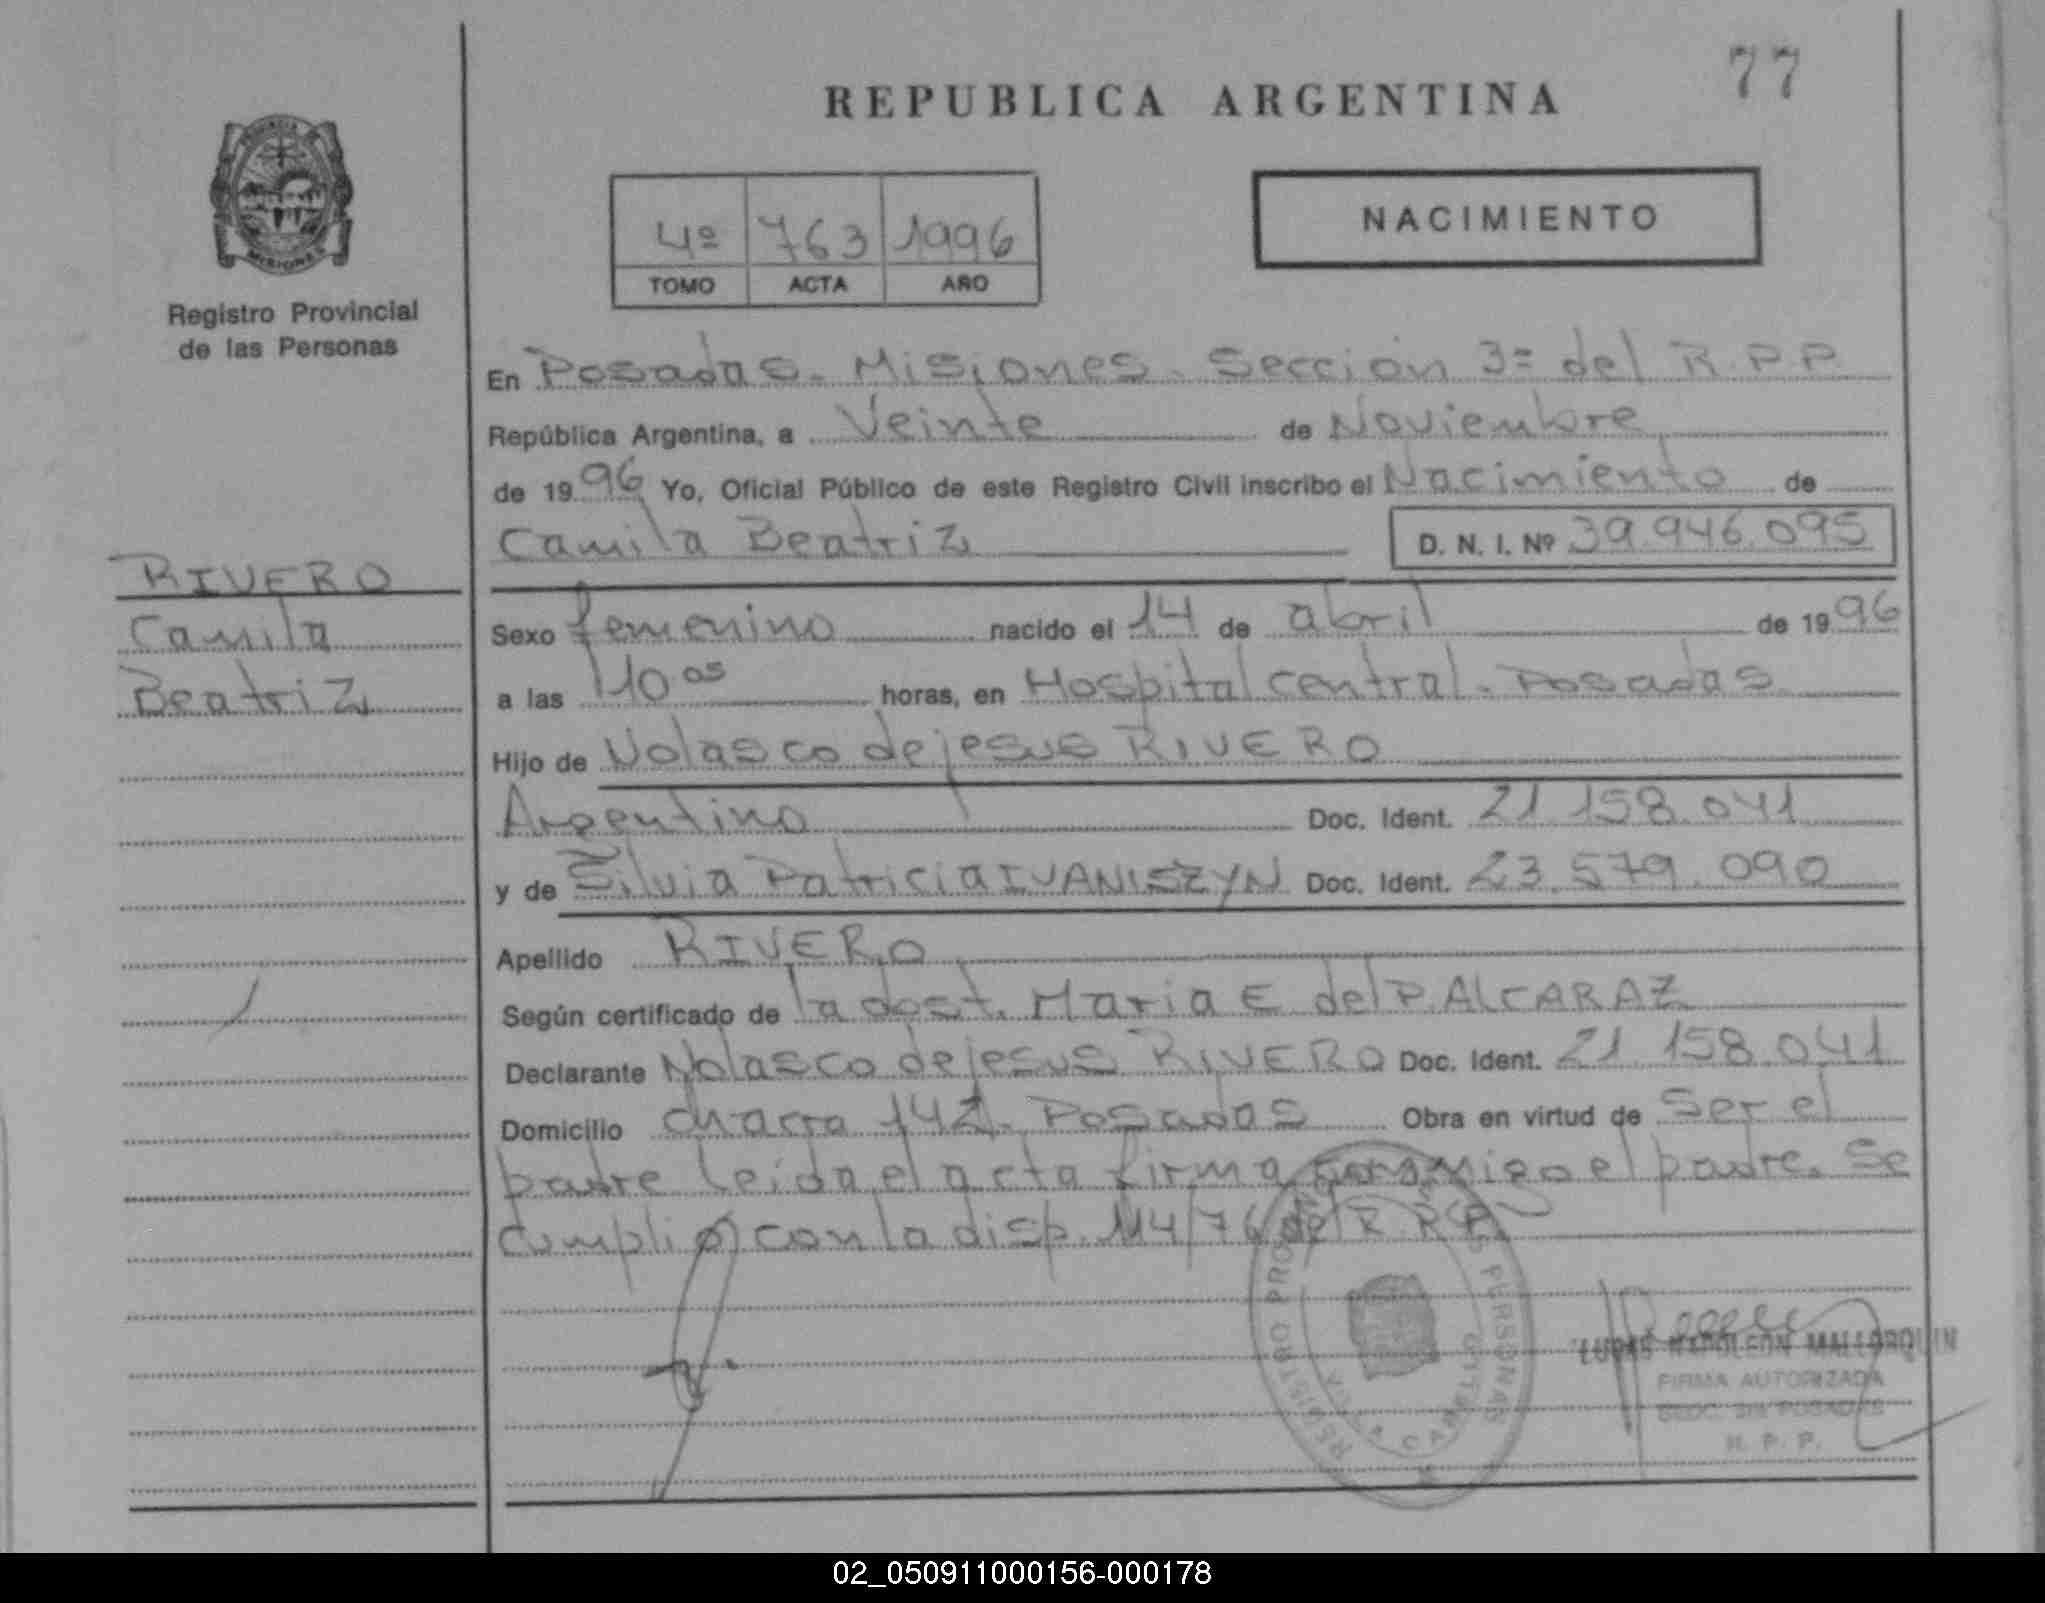 77
REPUBLICA ARGENTINA
NACIMIENTO
4º 763 1996
TOMO ACTA AÑO
MISIONES
Registro Provincial
de las Personas
RIVERO
Camila
Beatriz
En Posadas. Misiones. Sección 3ª del R.P.P.
República Argentina, a Veinte de Noviembre
de 1996 Yo, Oficial Público de este Registro Civil inscribo el Nacimiento de
Camila Beatriz D. N. I. Nº 39.946.095
Sexo femenino nacido el 14 de abril de 1996
a las 10 05 horas, en Hospital central. Posadas
Hijo de Nolasco de jesus RIVERO
Argentino Doc. Ident. 21.158.041
y de Silvia Patricia IVANISZYN Doc. Ident. 23.579.090
Apellido RIVERO
Según certificado de la dost. Maria E. del P. ALCARAZ
Declarante Nolasco de jesus RIVERO Doc. Ident. 21.158.041
Domicilio chacra 142. Posadas Obra en virtud de ser el
padre leida el acta firma conmigo el padre. Se
cumplió con la disp. 114/76 del R.P.P.
REGISTRO PERSONAS
LUCAS NAPOLEON MALLORQUIN
FIRMA AUTORIZADA
SECC. 3ra POSADAS
R. P. P.
02_050911000156-000178